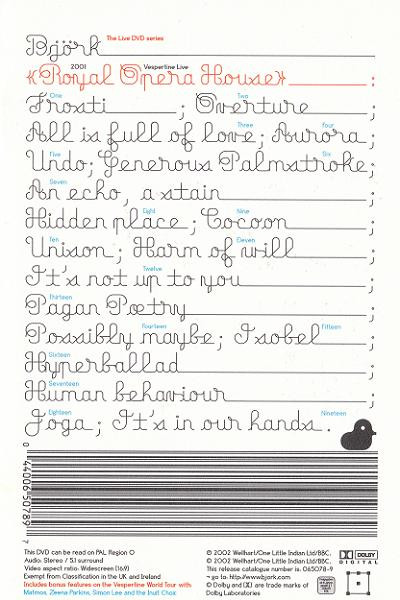 Björk The Live DVD series
2001 Vespertine Live
«Royal Opera House» ;
One Two
Frosti ; Overture ;
Three Four
All is full of love; Aurora;
Five Six
Undo; Generous Palmstroke;
Seven
An echo, a stain ;
Eight Nine
Hidden place ; Cocoon ;
Ten Eleven
Unison; Harm of will ;
Twelve
It's not up to you ;
Thirteen
Pagan Poetry ;
Fourteen Fifteen
Possibly maybe; Isobel ;
Sixteen
Hyperballad ;
Seventeen
Human behaviour ;
Eighteen Nineteen
Joga; It's in our hands.
0 44006 50789 7
This DVD can be read on PAL Region 0
Audio: Stereo / 5.1 surround
Video aspect ratio: Widescreen (16:9)
Exempt from Classification in the UK and Ireland
Includes bonus features on the Vespertine World Tour with
Matmos, Zeena Parkins, Simon Lee and the Inuit Choir
℗ 2002 Wellhart/One Little Indian Ltd/BBC.
© 2002 Wellhart/One Little Indian Ltd/BBC.
This release catalogue number is. 065078-9
→ go to: http://www.bjork.com
® Dolby and DD are trade marks of
Dolby Laboratories
DOLBY
DIGITAL